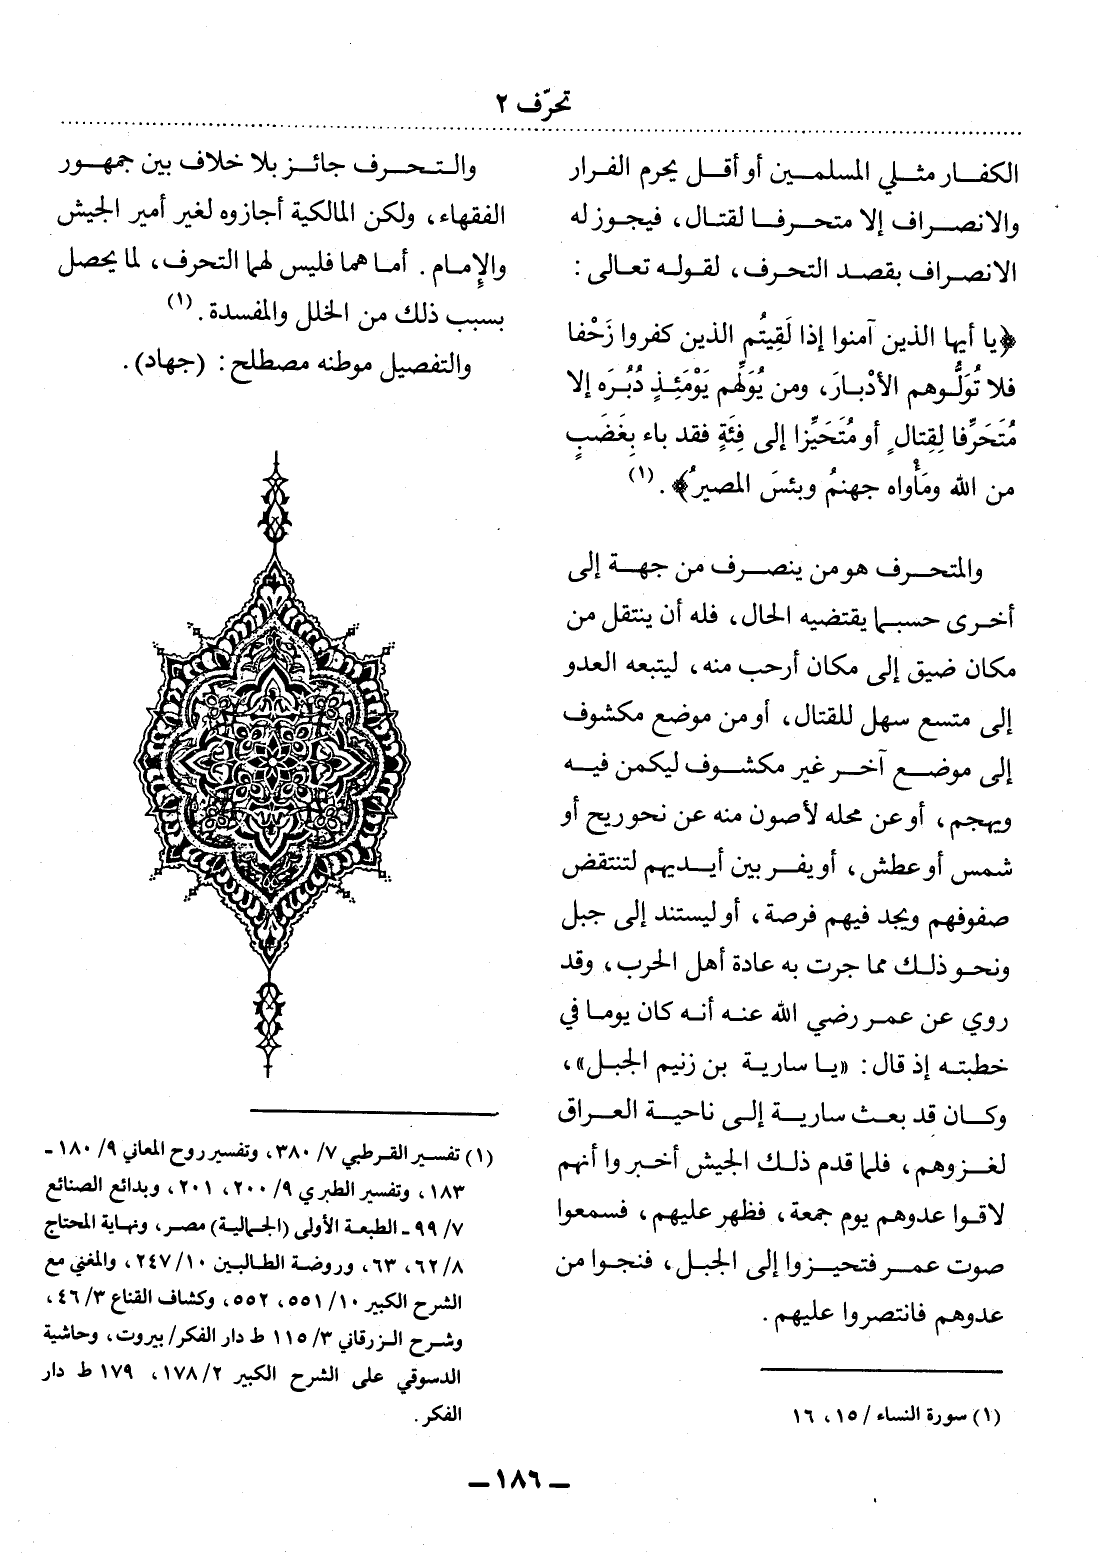 تحرّف ٢
الكفـار مثـلي المسلمـين أو أقـل يحرم الفرار
والانصـراف إلا متحرفـا لقتـال، فيجوز له
الانصـراف بقصد التحرف، لقوله تعالى:
﴿يا أيها الذين آمنوا إذا لَقِيتُم الذين كفروا زَحْفا
فلا تُوَلُّوهم الأدْبارَ، ومن يُوَلِّهم يَوْمَئِذٍ دُبُرَه إلا
مُتَحَرِّفا لِقِتالٍ أو مُتَحَيِّزا إلى فِئَةٍ فقد باء بِغَضَبٍ
من الله ومَأْواه جهنمُ وبئسَ المصيرُ﴾. (١)
والمتحرف هو من ينصـرف من جهـة إلى
أخـرى حسبـما يقتضيه الحال، فله أن ينتقل من
مكان ضيق إلى مكان أرحب منه، ليتبعه العدو
إلى متسع سهل للقتال، أو من موضع مكشوف
إلى موضـع آخـر غير مكشـوف ليكمن فيـه
ويهجم، أو عن محله لأصون منه عن نحو ريح أو
شمس أو عطش، أو يفـر بين أيـديهم لتنتقض
صفوفهم ويجد فيهم فرصة، أو ليستند إلى جبل
ونحو ذلـك مما جرت به عادة أهل الحرب، وقد
روي عن عمـر رضي الله عنـه أنـه كان يومـا في
خطبتـه إذ قال: «يـا ساريـة بن زنيم الجبـل»،
وكـان قد بعـث ساريـة إلـى ناحيـة العـراق
لغـزوهم، فلما قدم ذلـك الجيش أخـبروا أنهم
لاقـوا عدوهم يوم جمعة، فظهر عليهم، فسمعوا
صوت عمـر فتحيـزوا إلى الجبـل، فنجوا من
عدوهم فانتصروا عليهم.
(١) سورة النساء / ١٥، ١٦
والتـحـرف جائـز بلا خلاف بين جمهـور
الفقهاء، ولكن المالكية أجازوه لغير أمير الجيش
والإمـام. أما هما فليس لهما التحرف، لما يحصل
بسبب ذلك من الخلل والمفسدة. (١)
والتفصيل موطنه مصطلح: (جهاد).
(١) تفسير القـرطبي ٧/ ٣٨٠، وتفسير روح المعاني ٩/ ١٨٠ -
١٨٣، وتفسير الطبري ٩/ ٢٠٠، ٢٠١، وبدائع الصنائع
٧/ ٩٩ ـ الطبعة الأولى (الجمالية) مصر، ونهاية المحتاج
٨/ ٦٢، ٦٣، وروضة الطـالبين ١٠/ ٢٤٧، والمغني مع
الشرح الكبير ١٠/ ٥٥١، ٥٥٢، وكشاف القناع ٣/ ٤٦،
وشـرح الـزرقاني ٣/ ١١٥ ط دار الفكر/ بيروت، وحاشية
الدسوقي على الشرح الكبير ٢/ ١٧٨، ١٧٩ ط دار
الفكر.
ـ ١٨٦ ـ